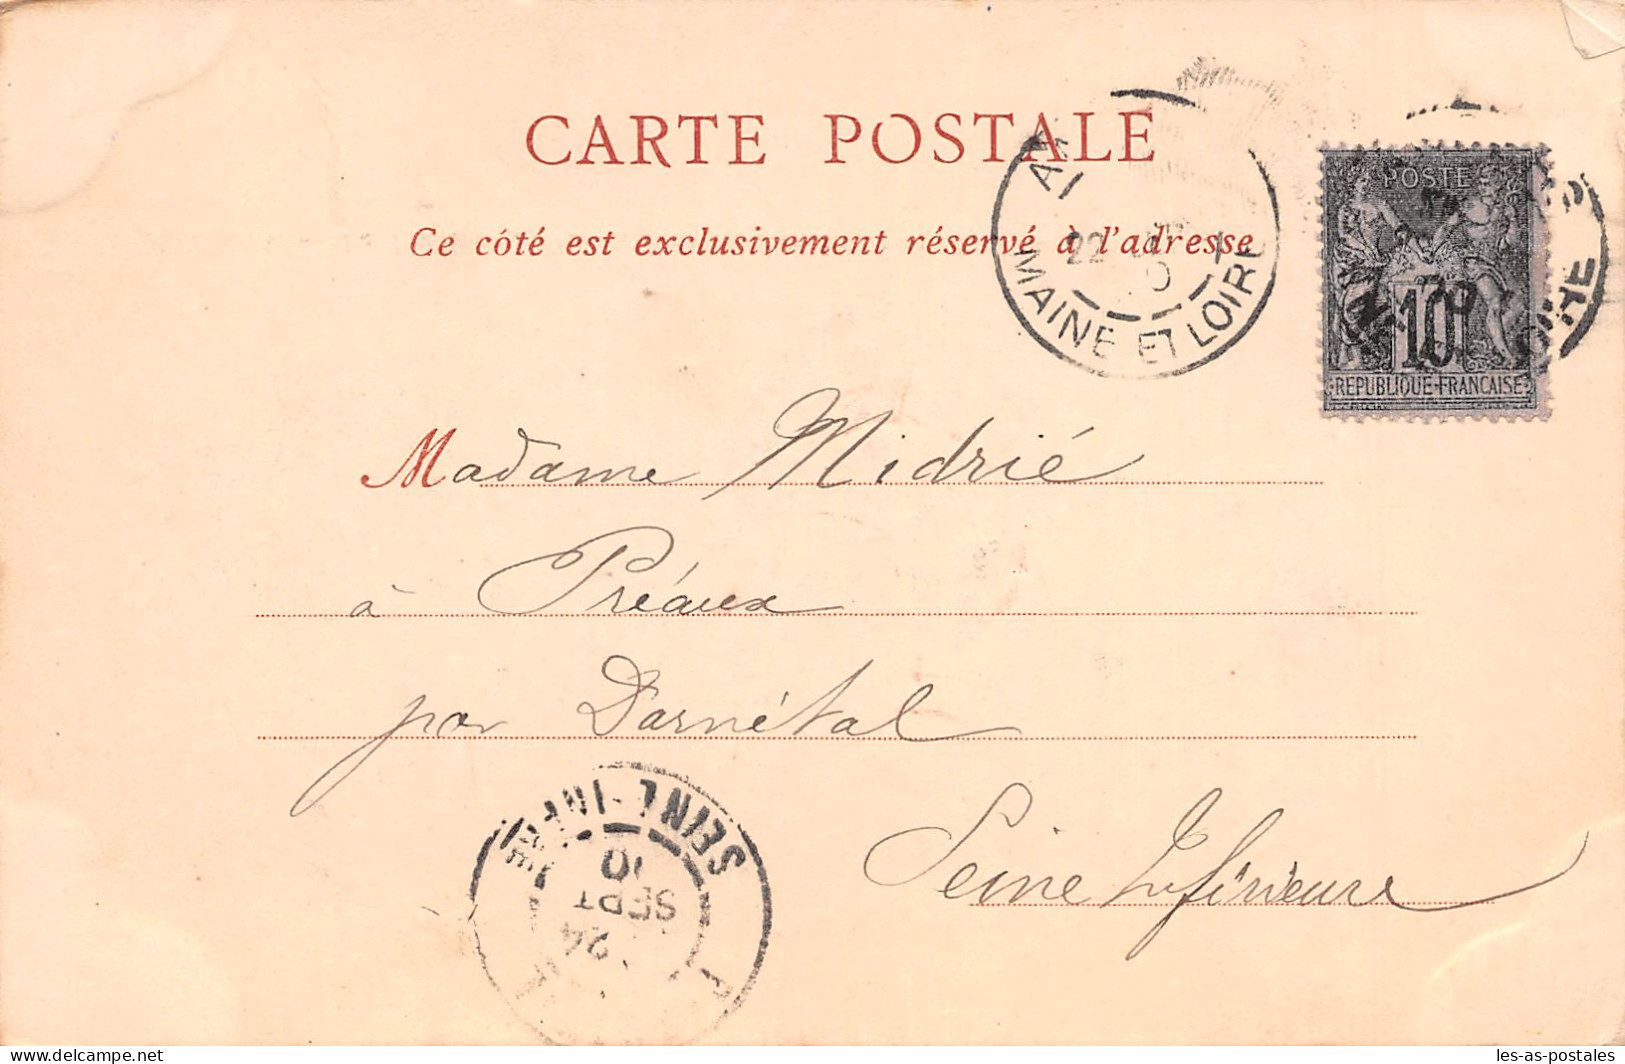 CARTE POSTALE
Ce côté est exclusivement réservé à l'adresse
MAINE ET LOIRE
22
POSTE
10
REPUBLIQUE FRANCAISE
Madame Midrié
à Préaux
par Darnétal
Seine Inférieure
SEINE-INFRE
24
SEPT
delcampe.net
les-as-postales